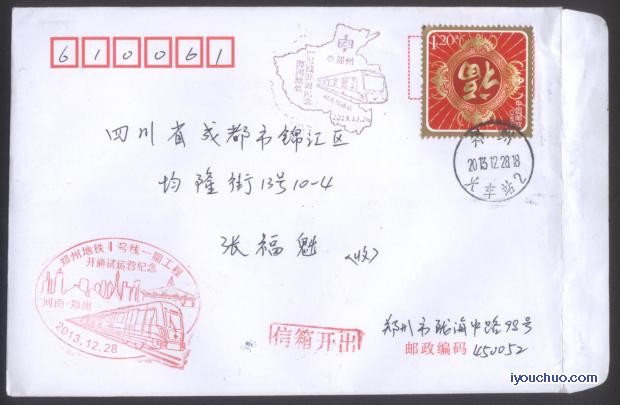 610061
郑州
郑州地铁
1号线开通纪念
2013.12.28
1.20元
福
中国邮政
四川省成都市锦江区
均隆街13号10-4
张福魁 (收)
郑州
2013.12.28.18
火车站2
郑州地铁1号线一期工程
开通试运营纪念
河南·郑州
2013.12.28
信箱开出
郑州市陇海中路98号
邮政编码 450052
iyouchuo.com